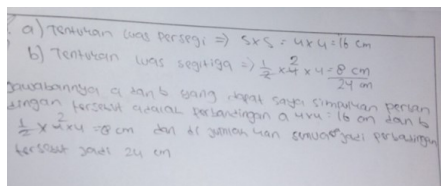 a) Tentukan luas persegi => s x s = 4 x 4 = 16 cm
b) Tentukan luas segitiga => 1/2 x 4 x 4 = 8 cm
24 cm
Jawabannya a dan b yang dapat saya simpulkan perban
dingan tersebut adalah perbandingan a 4x4 = 16 cm dan b
1/2 x 4 x 4 = 8 cm dan di jumlahkan semua jadi perbandingan
tersebut jadi 24 cm